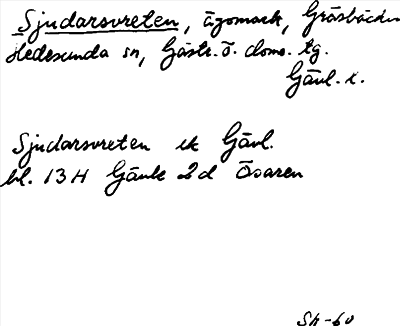 Sjudarsvreten, ägomark, Gräsbäcken
Hedesunda sn, Gästr. ö. doms. tg.
Gävl. l.
Sjudarsvreten ek Gävl.
bl. 13 H Gävle 2d Ösaren
Sh-60